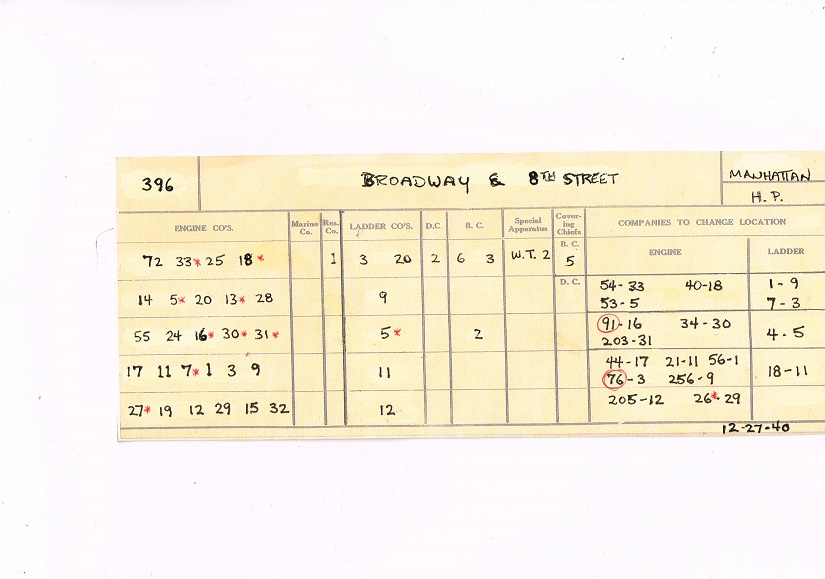 396 BROADWAY & 8TH STREET MANHATTAN
H. P.
ENGINE CO'S. Marine Co. Res. Co. LADDER CO'S. D.C. B. C. Special Apparatus Covering Chiefs COMPANIES TO CHANGE LOCATION
ENGINE LADDER
72 33* 25 18* 1 3 20 2 6 3 W.T. 2 B. C. 5
14 5* 20 13* 28 9 D. C. 54-33 40-18 1-9
53-5 7-3
55 24 16* 30* 31* 5* 2 91-16 34-30 4-5
203-31
17 11 7* 1 3 9 11 44-17 21-11 56-1 18-11
76-3 256-9
27* 19 12 29 15 32 12 205-12 26*-29
12-27-40